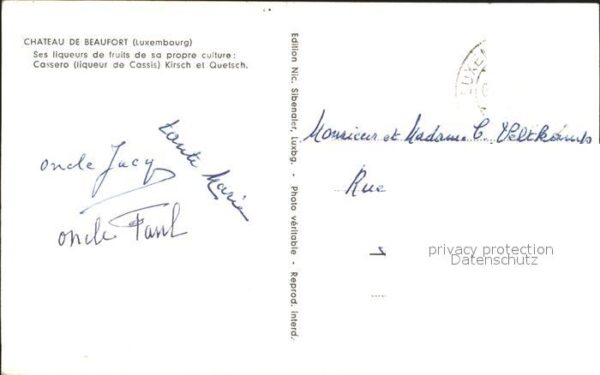 CHATEAU DE BEAUFORT (Luxembourg)
Ses liqueurs de fruits de sa propre culture:
Cassero (liqueur de Cassis) Kirsch et Quetsch.
tante Marie
oncle Jacq
oncle Paul
Edition Nic. Sibenaler, Luxbg. - Photo véritable - Reprod. interd.
LUXEM
Monsieur et Madame C. Veltkamp
Rue
privacy protection
Datenschutz